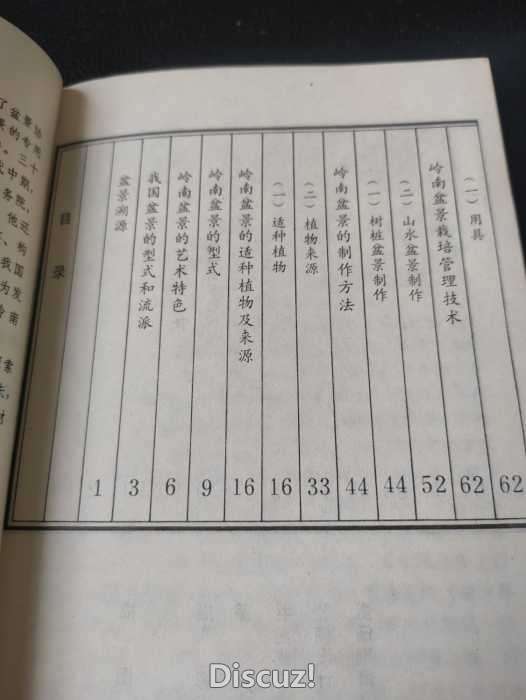 了盆景协
的专
三十
中期，
务院，
他还
、构
我国
为发
南
索
材
目录
盆景溯源 1
我国盆景的型式和流派 3
岭南盆景的艺术特色 6
岭南盆景的型式 9
岭南盆景的适种植物及来源 16
（一）适种植物 16
（二）植物来源 33
岭南盆景的制作方法 44
（一）树桩盆景制作 44
（二）山水盆景制作 52
岭南盆景栽培管理技术 62
（一）用具 62
Discuz!